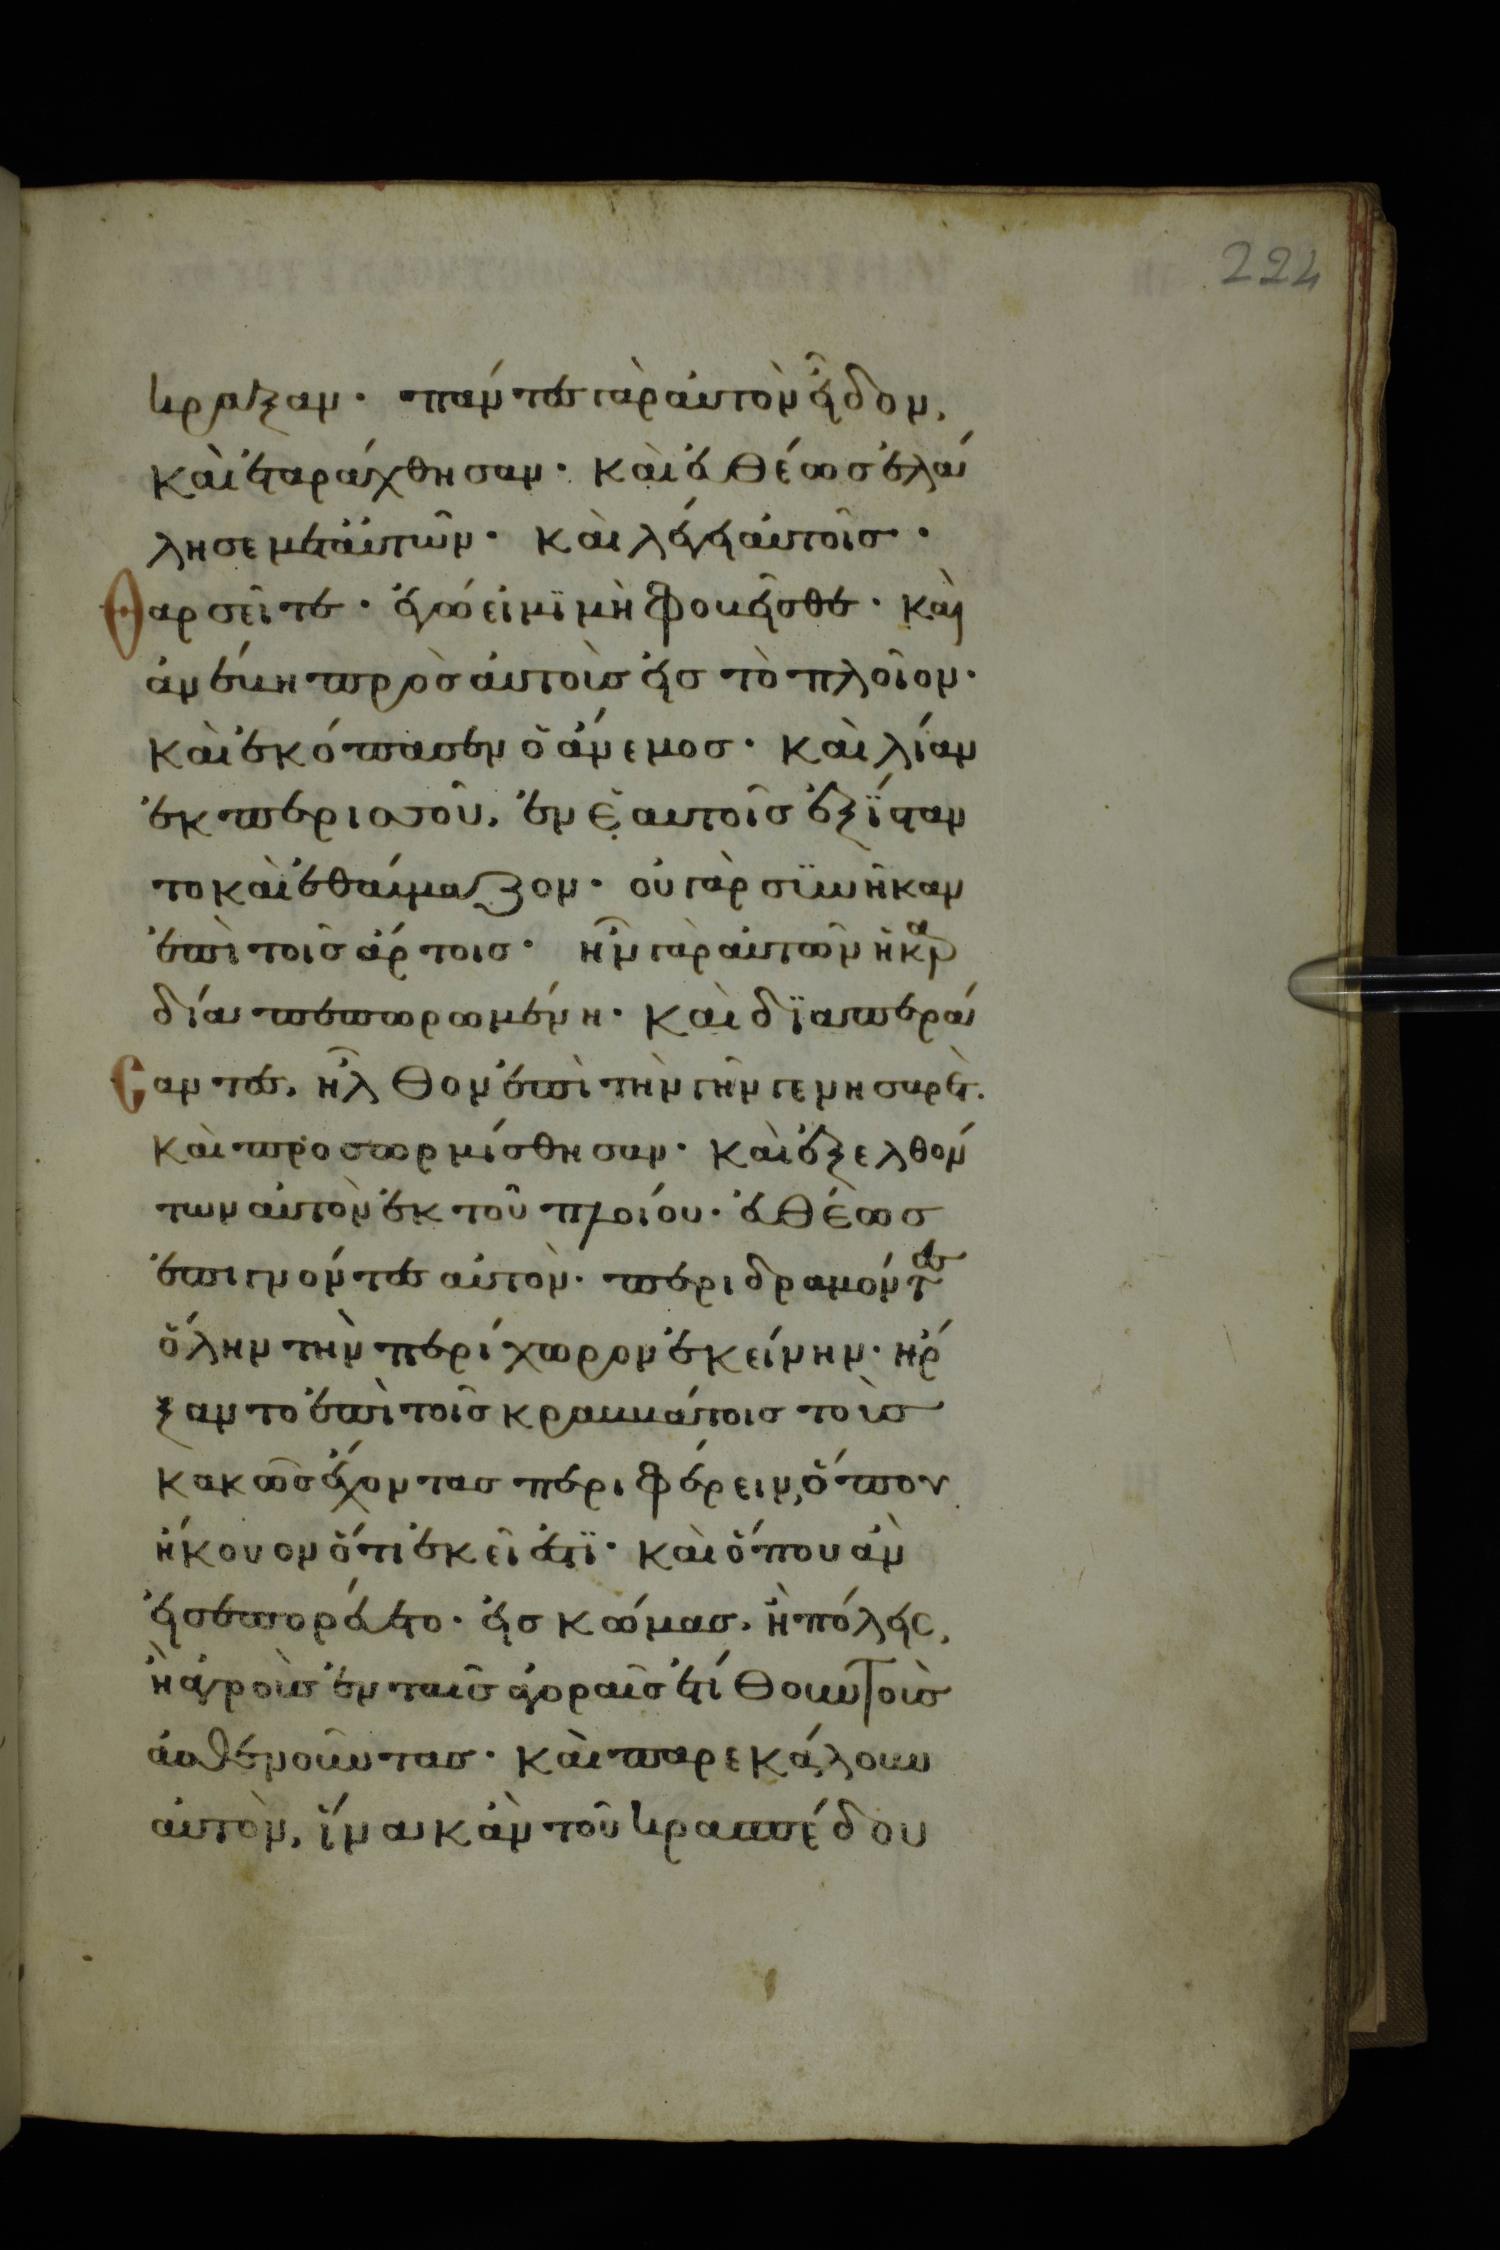 224
κραξαν· πάντες γὰρ αὐτὸν εἶδον,
καὶ ἐταράχθησαν· καὶ ὁ θέωσ ἐλά
λησε μετ' αὐτῶν· καὶ λέγει αὐτοῖσ·
Θαρσεῖτε· ἐγώ εἰμϊ μὴ φοβεῖσθε· καὶ
ἀνέβη πρὸσ αὐτοὺσ εἰσ τὸ πλοῖον·
καὶ ἐκόπασεν ὁ ἄνεμοσ· καὶ λίαν
ἐκ περισσοῦ, ἐν ἑαυτοῖσ ἐξΐσταν
το καὶ ἐθαύμαζον· οὐ γὰρ σϋνῆκαν
ἐπὶ τοῖσ ἄρτοισ· ἦν γὰρ αὐτῶν ἡ καρ
δία πεπωρωμένη· καὶ δϊαπερά
Σαντεσ, ἦλθον ἐπὶ τὴν γῆν γενησαρὲτ.
καὶ προσωρμίσθησαν· καὶ ἐξελθόν
των αὐτὸν ἐκ τοῦ πλοίου· ὁ θέωσ
ἐπιγνόντεσ αὐτὸν· περιδραμόντεσ
ὅλην τὴν περίχωρον ἐκείνην· ἤρ
ξαντο ἐπὶ τοῖσ κραββάτοισ τοὺσ
κακῶσ ἔχοντασ περιφέρειν, ὅπου
ἤκουον ὅτι ἐκεῖ ἐστϊ· καὶ ὅπου ἀν
εἰσεπορέυετο· εἰσ κώμασ, ἢ πόλεισ,
ἢ ἀγροὺσ ἐν ταῖσ ἀγοραῖσ ἐτίθουν τοὺσ
ἀσθενοῦντασ· καὶ παρεκάλουν
αὐτὸν, ἵνα κἀν τοῦ κρασπέδου